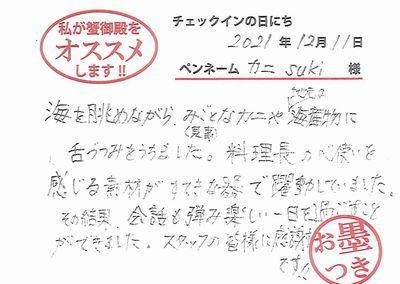 私が蟹御殿を
オススメ
します!!
チェックインの日にち
2021 年 12月 11日
ペンネーム カニ suki 様
海を眺めながら、みごとなカニや地元の海産物に
(夏蟹)
舌づつみをうちました。料理長の心使いを
感じる素材がすてきな器で躍動していました。
その結果、会話も弾み楽しい一日を過ごすこと
ができました。スタッフの皆様に感謝
です!!
お墨
つき